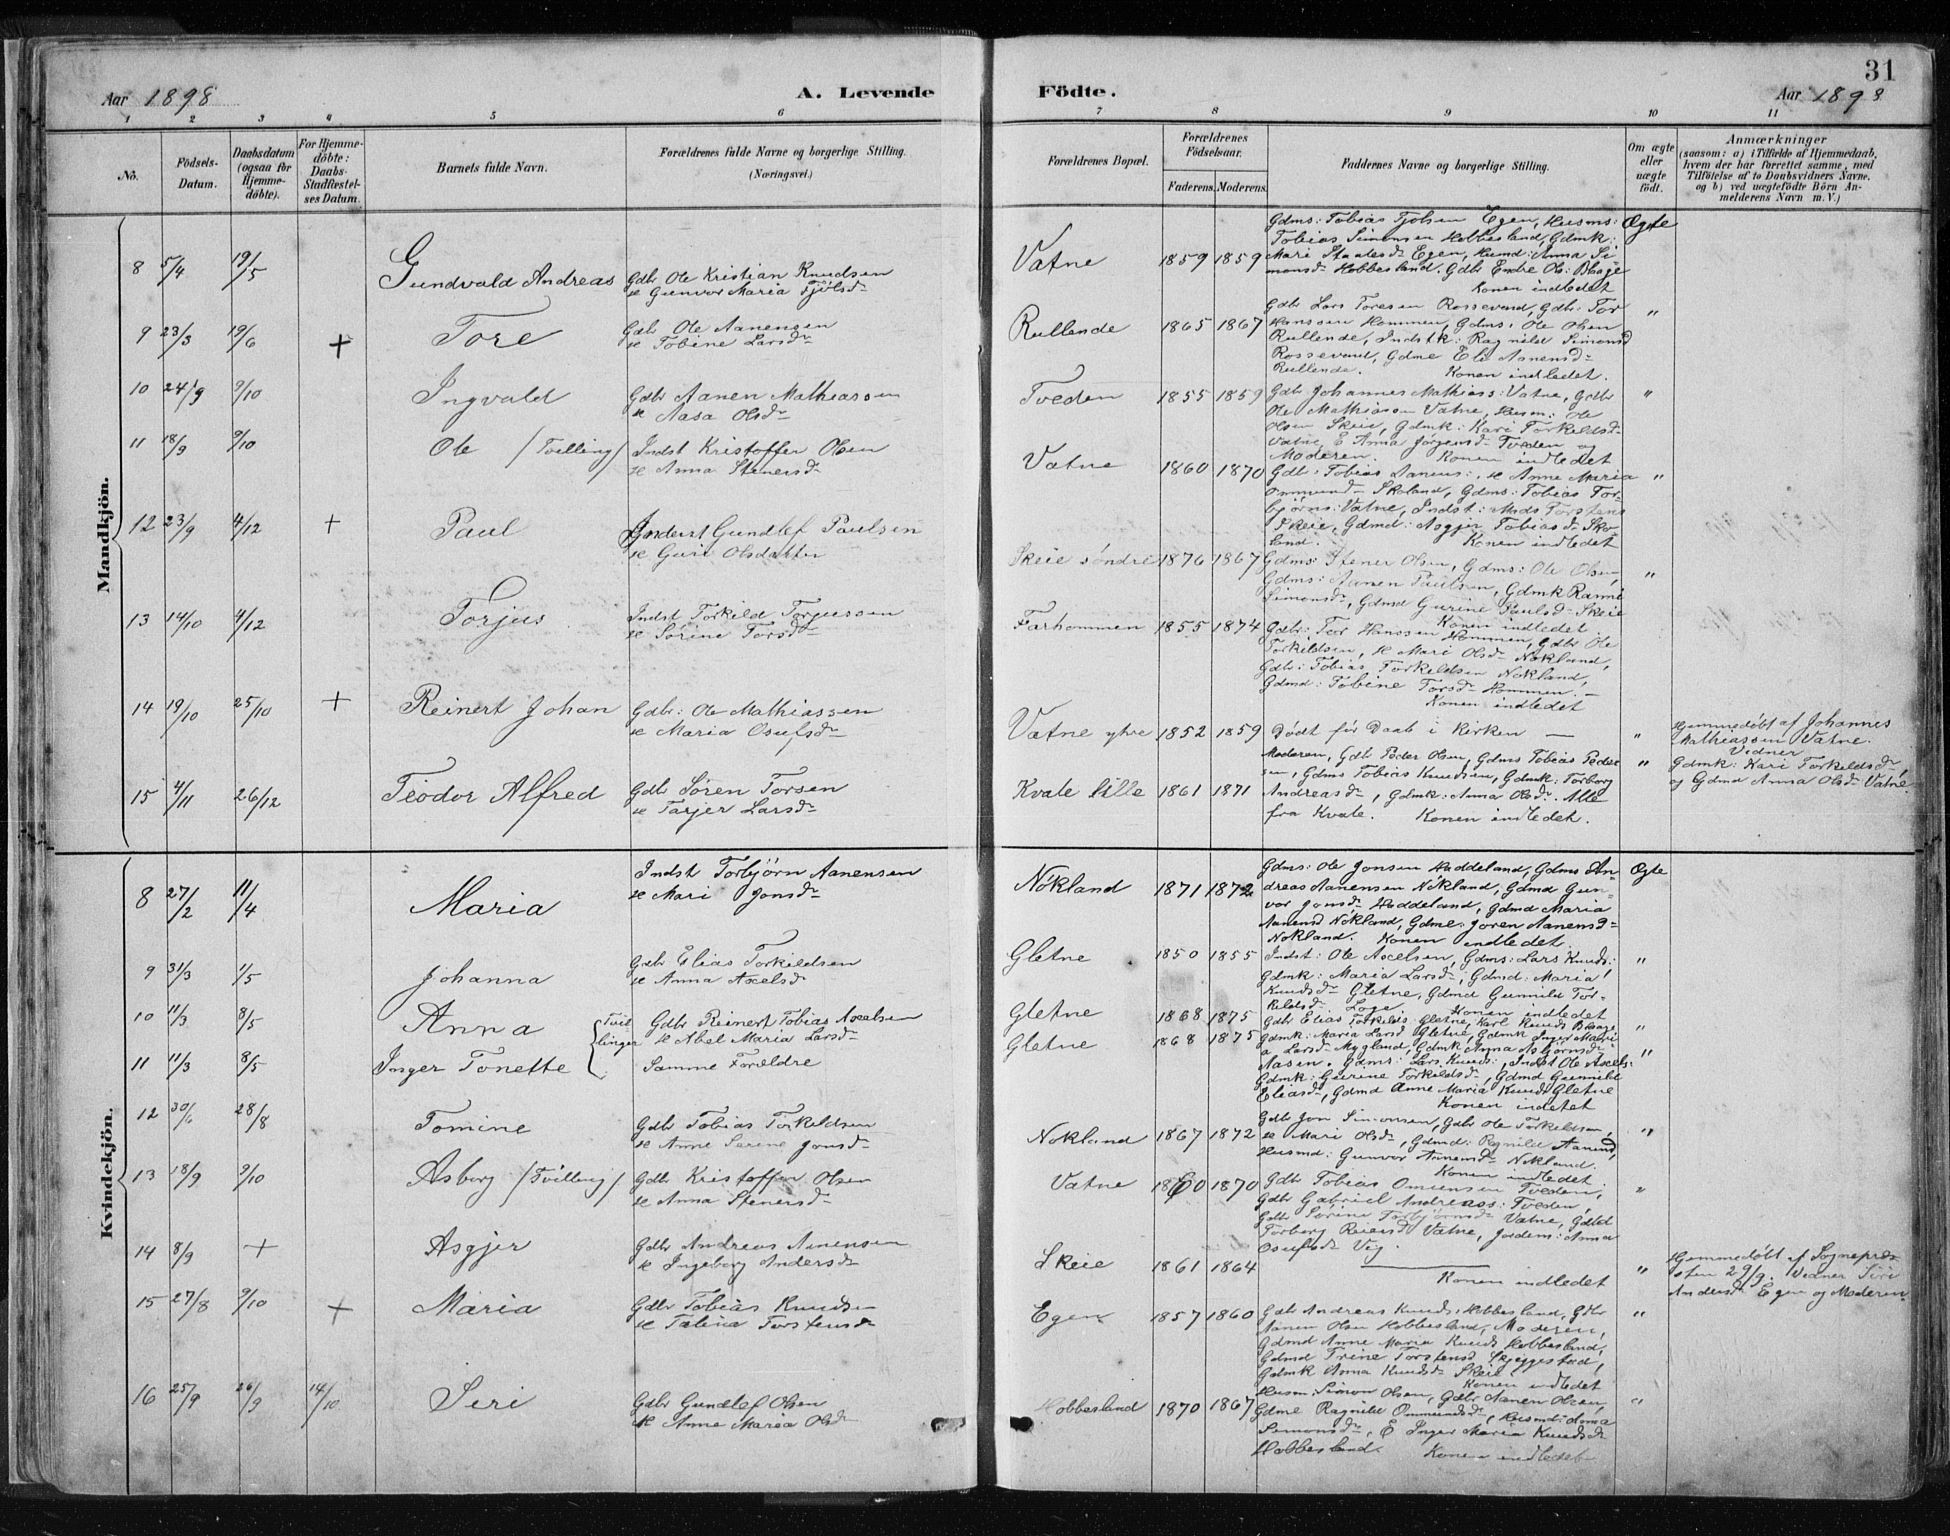 31
Aar 1898
A. Levende
Födte.
Aar 1898
1 2 3 4 5 6 7 8 9 10 11
No.
Födsels-Datum.
Daabsdatum (ogsaa för Hjemme-döbte).
For Hjemme-döbte: Daabs-Stadfæstel-ses Datum.
Barnets fulde Navn.
Forældrenes fulde Navne og borgerlige Stilling.
(Næringsvei.)
Forældrenes Bopæl.
Forældrenes Födselsaar.
Faderens. Moderens.
Faddernes Navne og borgerlige Stilling.
Om ægte eller uægte födt.
Anmærkninger
(saasom: a) i Tilfælde af Hjemmedaab,
hvem der har forrettet samme, med
Tilföielse af to Daabsvidners Navne.
og b) ved uægtefödte Börn An-
melderens Navn m. V.)
Mandkjön.
8 5/4 19/5 Gundvald Andreas
Gdbr Ole Kristian Knudsen
& Gunvor Maria Fjölsdr
Vatne 1859 1859
Gdms: Tobias Fjolsen Egen, Husms:
Tobias Simonsen Hobbesland, Gdmk:
Mari Egen, Husmd: Anna Si
monsdr Hobbesland. Gdbr Endre Ols: Blaage
Konen indledet
Ægte
9 23/3 19/6 + Tore
Gdbr Ole Aanensen
& Tobine Larsdr
Rullende 1865 1867
Gdbr Lars Toresen Rossevand, Gdbr: Tor
Hanssen Hommen, Gdms: Ole Olsen
Rullende, Indstk: Ragnild Simonsd
Rossevand, Gdme Eli Aanensdr
Rullende. Konen indledet.
"
10 24/9 9/10 Ingvald
Gdbr Aanen Mathiassen
& Aasa Olsdr
Tveden 1855 1859
Gdbr Johannes Mathiass: Vatne, Gdbr
Ole Mathiassen Vatne, Husm: Ole
Olsen Skeie, Gdmk: Kari Torkildsdr
Vatne, E Anna Jörgensdr Tveden og
Moderen. Konen indledet
"
11 18/9 9/10 Ole /Tvilling/
Indst Kristoffer Olsen
& Anna Stenersdr
Vatne 1860 1870
Gdb: Tobias Aanens:, & Anne Maria
Ommundr Skoland, Gdms: Tobias Tor-
björns: Vatne, Indst: Mads Torstens
Skeie, Gdmd: Asgjer Tobiasdr Sko
land. Konen indledet
"
12 23/9 4/12 + Paul
Inderst Gundlef Paulsen
& Guri Olsdatter
Skeie söndre 1876 1867
Gdms: Stener Olsen, Gdms: Ole Olsen,
Gdms: Aanen Paulsen, Gdmk Ranni
Simonsdr, Gdmd Gurine Paulsdr Skeie
Konen indledet
"
13 14/10 4/12 Torjus
Indst Torkild Torjussen
& Sörine Torsdr
Farhommen 1855 1874
Gdbr: Tor Hanssen Hommen, Gdbr Ole
Torkildsen, & Mari Olsdr Nökland,
Gdbr: Tobias Torkildsen Nökland,
Gdmd: Tobine Torsdr Hommen. –
Konen indledet
14 19/10 25/10 + Reinert Johan
Gdbr: Ole Mathiassen
& Maria Osufsdr
Vatne ytre 1852 1859
Dödt för Daab i Kirken —
"
Hjemmedöbt af Johannes
Mathiassen Vatne.
Vidner
Gdmk: Kari Torkildsdr,
og Gdmd Anna Olsdr Vatne.
15 4/11 26/12 Teodor Alfred
Gdbr Sören Torsen
& Tarjer Larsdr
Kvale lille 1861 1871
Moderen, Gdb Peder Olsen, Gdms Tobias Peder
sen, Gdms Tobias Knudsen, Gdmk: Torborg
Andreasdr, Gdmk: Anna Olsdr. Alle
fra Kvale. Konen indledet.
"
Kvindekjön.
8 27/2 11/4 Maria
Indst Torbjörn Aanensen
& Mari Jonsdr
Nökland 1871 1872
Gdms: Ole Jonsen Haddeland, Gdms An-
dreas Aanensen Nökland, Gdmd Gun-
vor Jonsdr Haddeland, Gdmd Maria
Aanensd Nökland, Gdme: Joren Aanensd-
Nökland. Konen indledet
Ægte
9 31/3 1/5 Johanna
Gdbr Elias Torkildsen
& Anna Axelsdr
Gletne 1850 1855
Indst: Ole Axelsen, Gdms: Lars Knuds:
Gdmk: Maria Larsdr, Gdmd: Maria
Knudsdr Gletne, Gdmd Gunnild Tor-
kildsdr Loge. Konen indledet
"
10 11/3 8/5 Anna
Tvil
linger
Gdbr Reinert Tobias Axelsen
& Abel Maria Larsdr
Gletne 1868 1875
Gdbr Elias Torkilds: Gletne, Karl Knuds Blaage
Gdmk: Maria Larsd Gletne, Gdmk Inger Mari
a Larsdr Mygland, Gdmk Anna Asbjörnsdr
"
11 11/3 8/5 Inger Tonette
Samme Forældre
Gletne 1868 1875
Aasen. Gdms: Lars Knuds:, Indst Ole Axels:
Gdmk: Gurine Torkildsdr, Gdmd Gunnild
Eliasdr, Gdmd Anne Maria Knudsd Gletne
Konen indledet
"
12 30/6 28/8 Tomine
Gdbr Tobias Torkildsen
& Anne Serine Jonsdr
Nökland 1867 1872
Gdb Jon Simonsen, Gdbr Ole Torkildsen,
& Mari Olsdr, Gdmd: Ragnild Aanensd,
Husmd: Gunvor Aanensdr Nökland.
Konen indledet
"
13 18/9 9/10 Asborg /Tvilling/
Gdb Kristoffer Olsen
& Anna Stenersd
Vatne 1860 1870
Gdbr Tobias Omunsen Tveden,
Gdbr Gabriel Andreass: Tveden,
Gdbr Sörine Torbjörnsdr Vatne, Gdbd
Torborg Reiersd Vatne, Jordem: Anna
Osufsdr Vig.
"
14 8/9 + Asgjer
Gdbr Andreas Aanensen
& Ingeborg Andersdr
Skeie 1861 1864
Konen indledet
"
Hjemmedöbt af Sognepræ
sten 29/9. Vidner Siri
Andersdr Egen og Moderen
15 27/8 9/10 + Maria
Gdbr Tobias Knudsen
& Talina Torstensdr
Egen 1857 1860
Gdb Andreas Knuds: Hobbesland, Gdbr
Aanen Olsen Hobbesland, Moderen,
Gdmd Anne Maria Knudsd Hobbesland,
Gdmd Trine Torstensd Skjeggestad,
Gdmk Anna Knudsdr Skeie
Konen indledet
"
16 25/9 26/9 14/10 Seri
Gdbr Gundlef Olsen
& Anne Maria Olsdr
Hobbesland 1870 1867
Husm: Simon Olsen, Gdbr Aanen Olsen,
Gdme Ragnild Ommundsdr, Husmd: Anna
Simonsdr, E Inger Maria Knudsdr
Hobbesland. Konen indledet
"